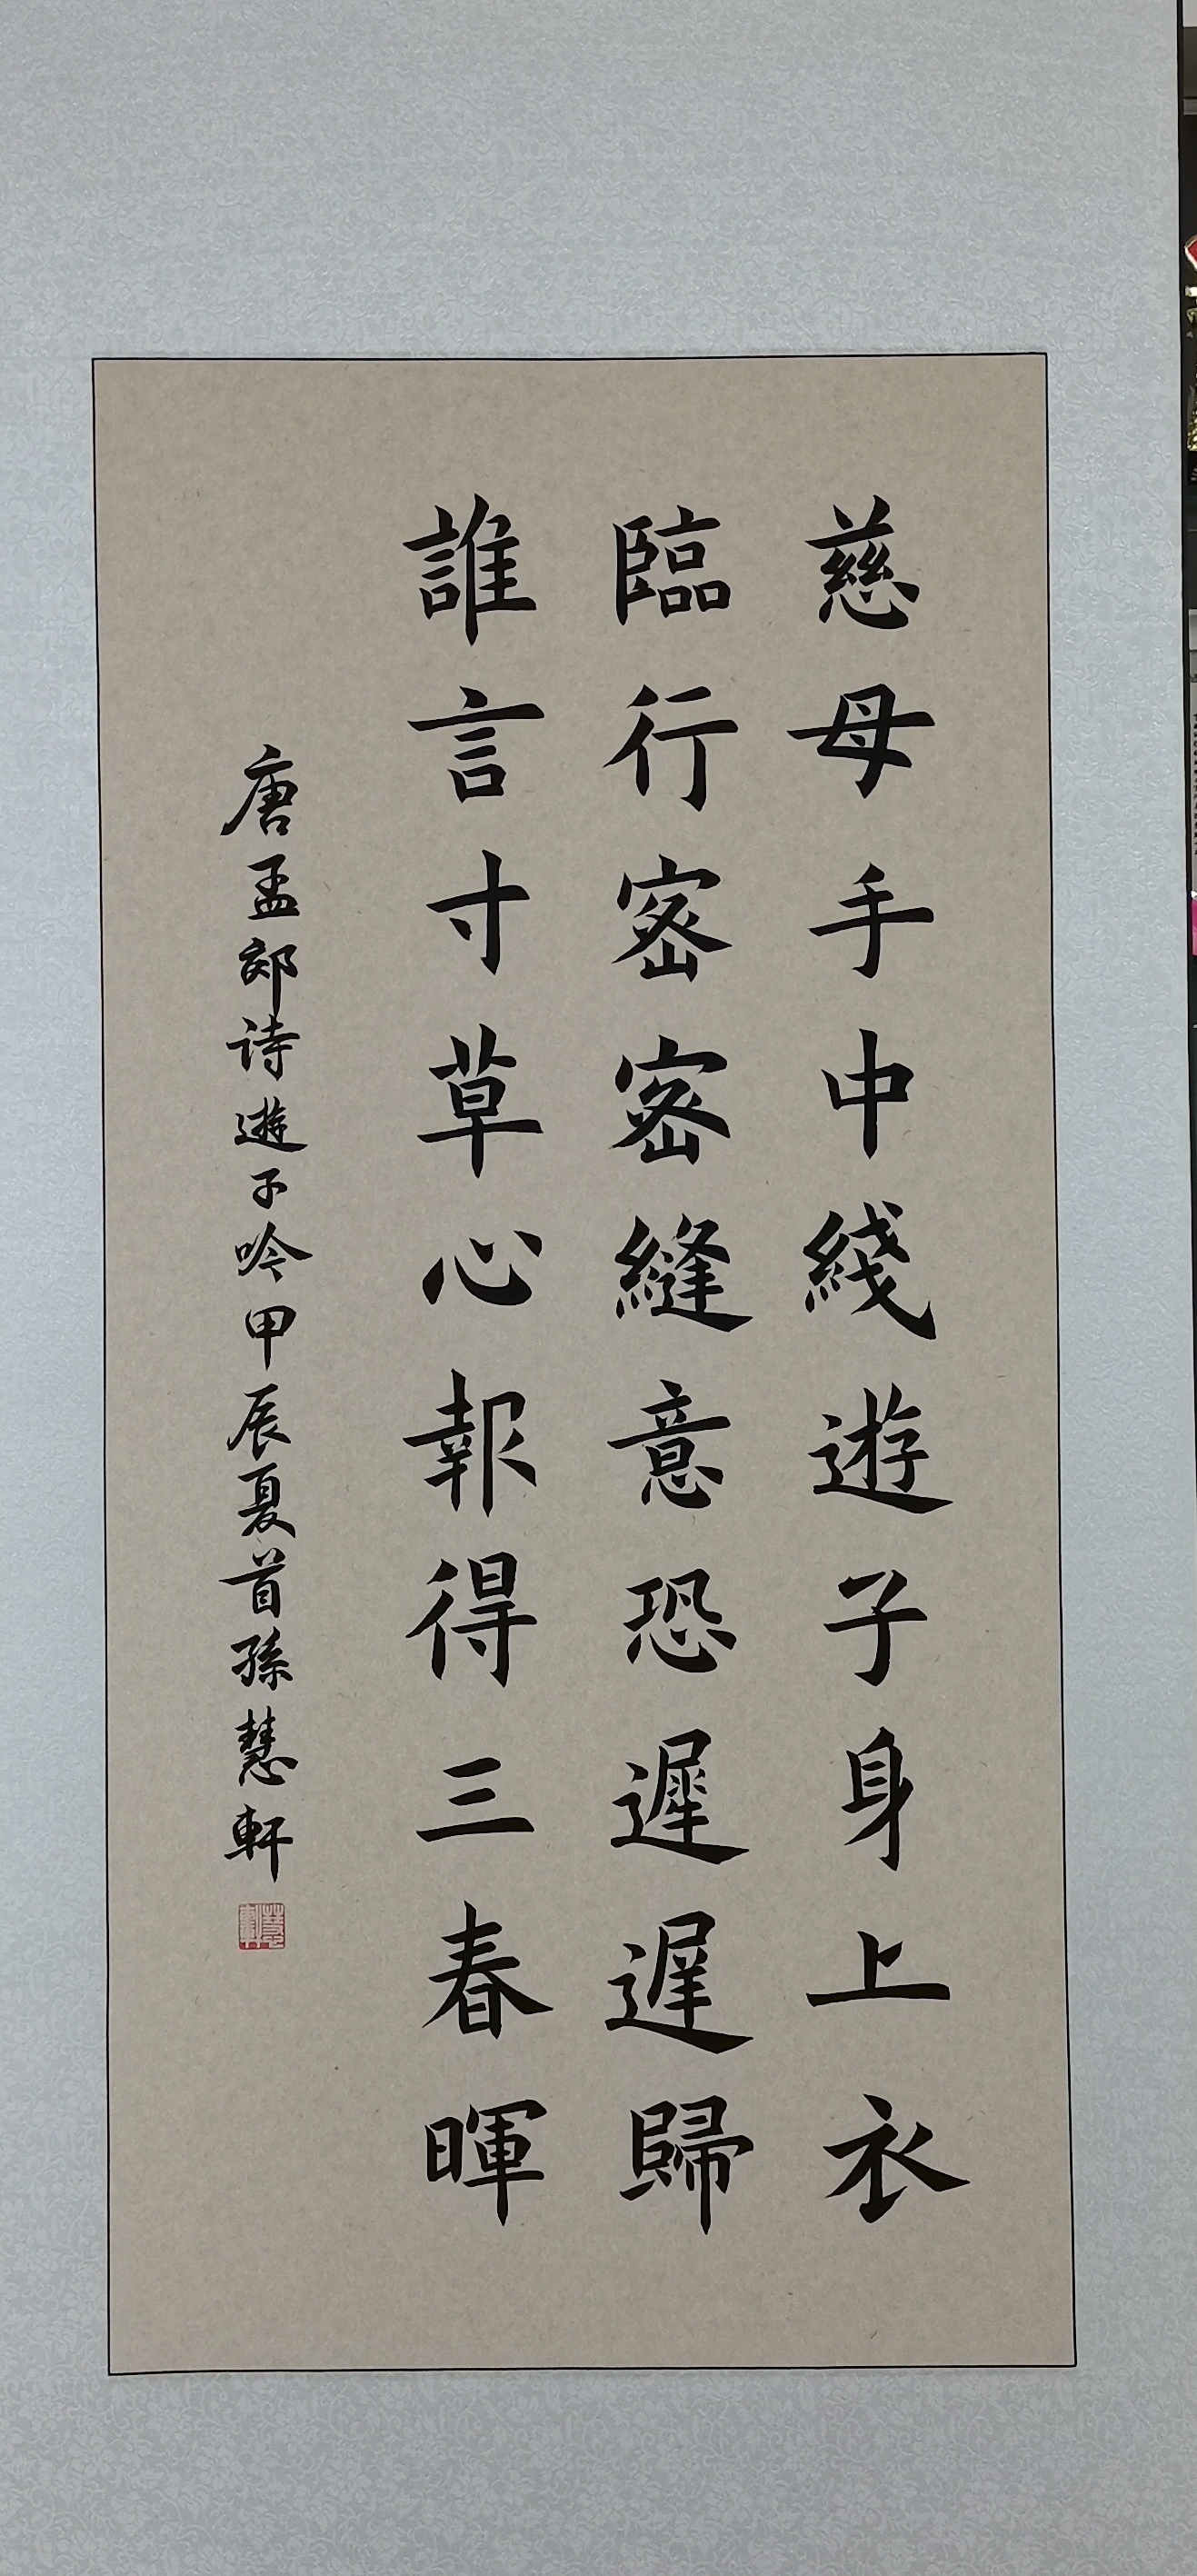 慈母手中綫遊子身上衣
臨行密密縫意恐遲遲歸
誰言寸草心報得三春暉
唐孟郊诗遊子吟甲辰夏首孫慧軒
慧軒